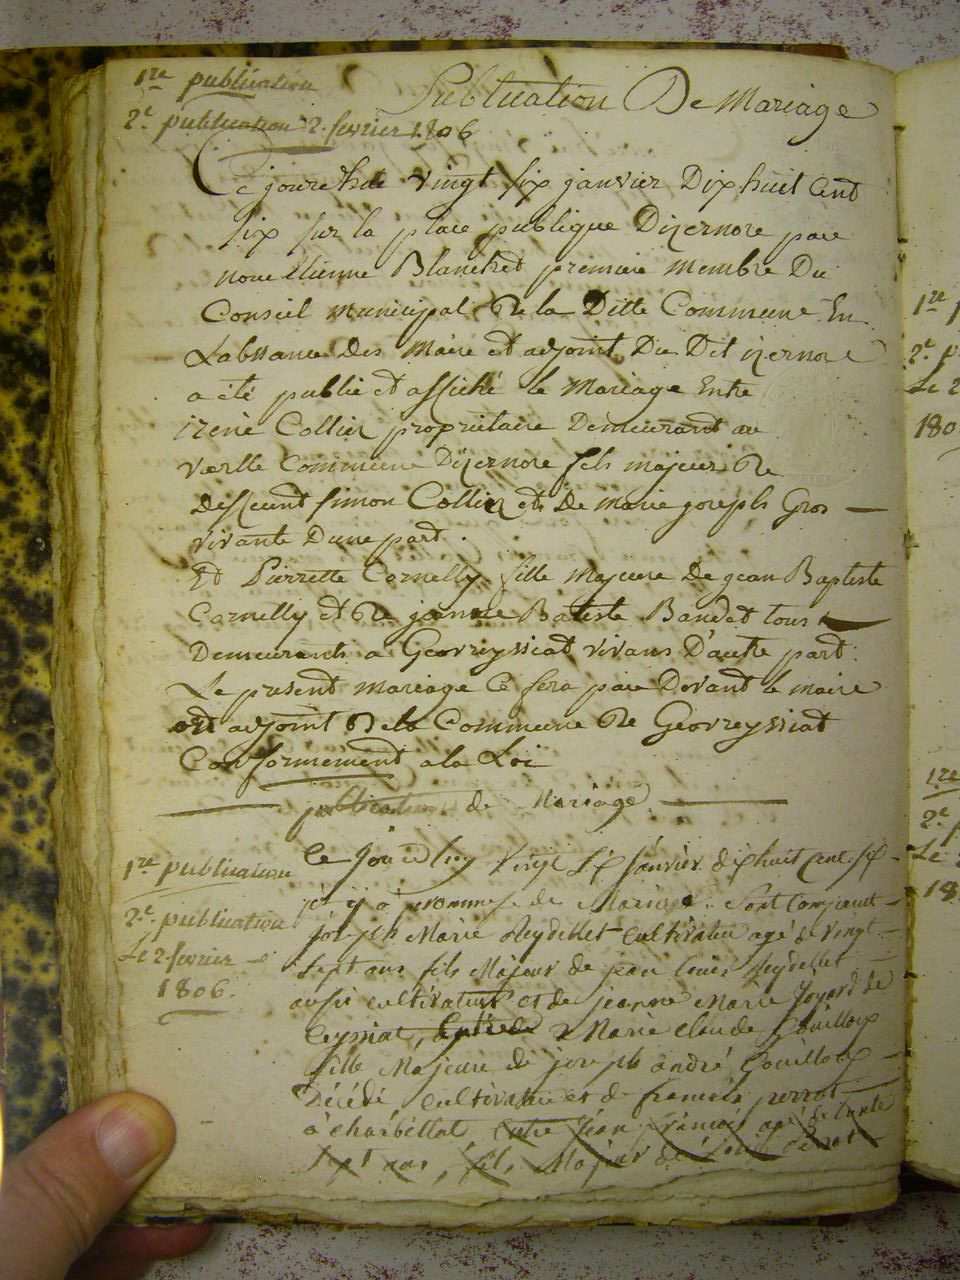 1re publication
2e publication 2 fevrier 1806
Publication De Mariage
Ce jourdhui vingt six janvier Dix huit Cent
six sur la place publique Dizernore par
nous Etienne Blanchet premier membre Du
Conseil municipal De la Ditte Commune En
Labssance des maire et adjoint Du Dit izernore
a été publié et affiché le Mariage Entre
irené Collier propriétaire Demeurant au
Commune Dizernore fils majeur De
deffeunt simon Collier et De marie joseph Gros
vivante Dune part.
Et Pierrette Cornelly fille majeure De jean Baptiste
Cornelly et De jeanne Batiste Baudet tous
Demeurants a Geovreyssiat vivans D'autre part.
Le present mariage Ce fera par Devant le maire
et adjoint De la Commune De Geovreyssiat
Conformement a la Loi
publication de Mariage
1re publication
2e publication
Le 2 fevrier
1806.
Ce Jourdhuy Vingt six Janvier dixhuit cent six
il y a promesse de Mariage
joseph Marie Reydellet cultivateur agé de vingt
sept ans fils Majeur de jean louis Reydellet
aussi cultivateur et de jeanne Marie Joyard de
Ceyssiat, & Marie claude Gouilloux
fille Majeure de joseph andré Gouilloux
Décédé cultivateur et de francoise perrot
à charbillat entre jean francois agé de trente
sept ans, fils Majeur de